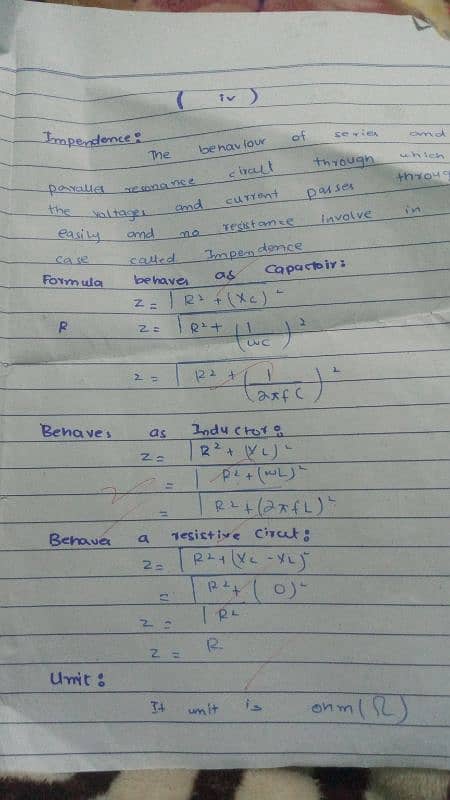 ( iv )
Impendence:
The behaviour of series and
parallel resonance circuit through which
the voltages and current passes throug
easily and no resistance involve in
case called Impendence
Formula behaves as Capactoir:
Z = √R² + (Xc)²
R Z = √R² + (1/ωC)²
Z = √R² + (1/2πfC)²
Behaves as Inductor:
Z = √R² + (XL)²
= √R² + (ωL)²
= √R² + (2πfL)²
Behaves a resistive Circut:
Z = √R² + (XL - XL)²
= √R² + (0)²
Z = √R²
Z = R
Unit:
It unit is ohm (Ω)